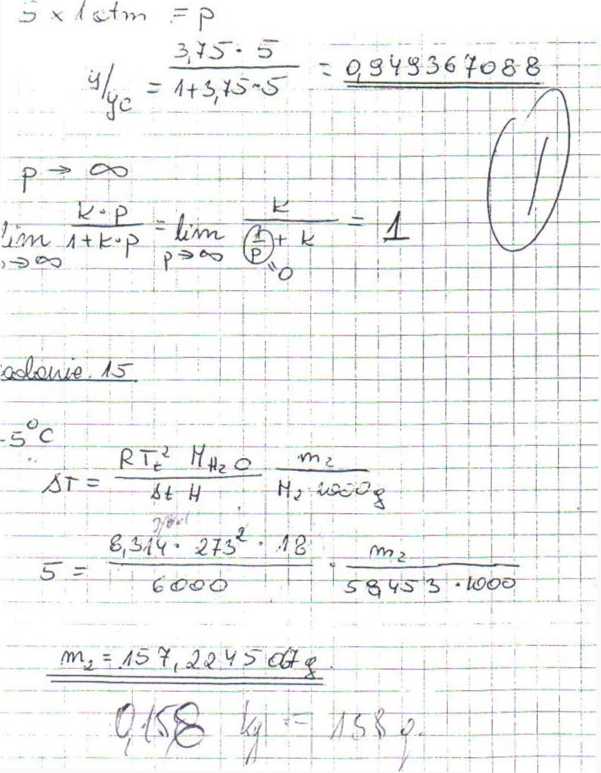 5 × 1 atm = p
y/yc = 3,75 · 5 / 1+3,75·5 = 0,949367088
1
p → ∞
lim p→∞ k·p / 1+k·p = lim p→∞ k / 1/p + k = 1
=0
adanie 15
-5°C
ΔT = RTt² MH2O / Δt H m2 / M2 · 1000g
5 = 8,314 · 273² · 18 / 6000 · m2 / 58,453 · 1000
m2 = 157,2245067g
0,158 kg = 158 g.